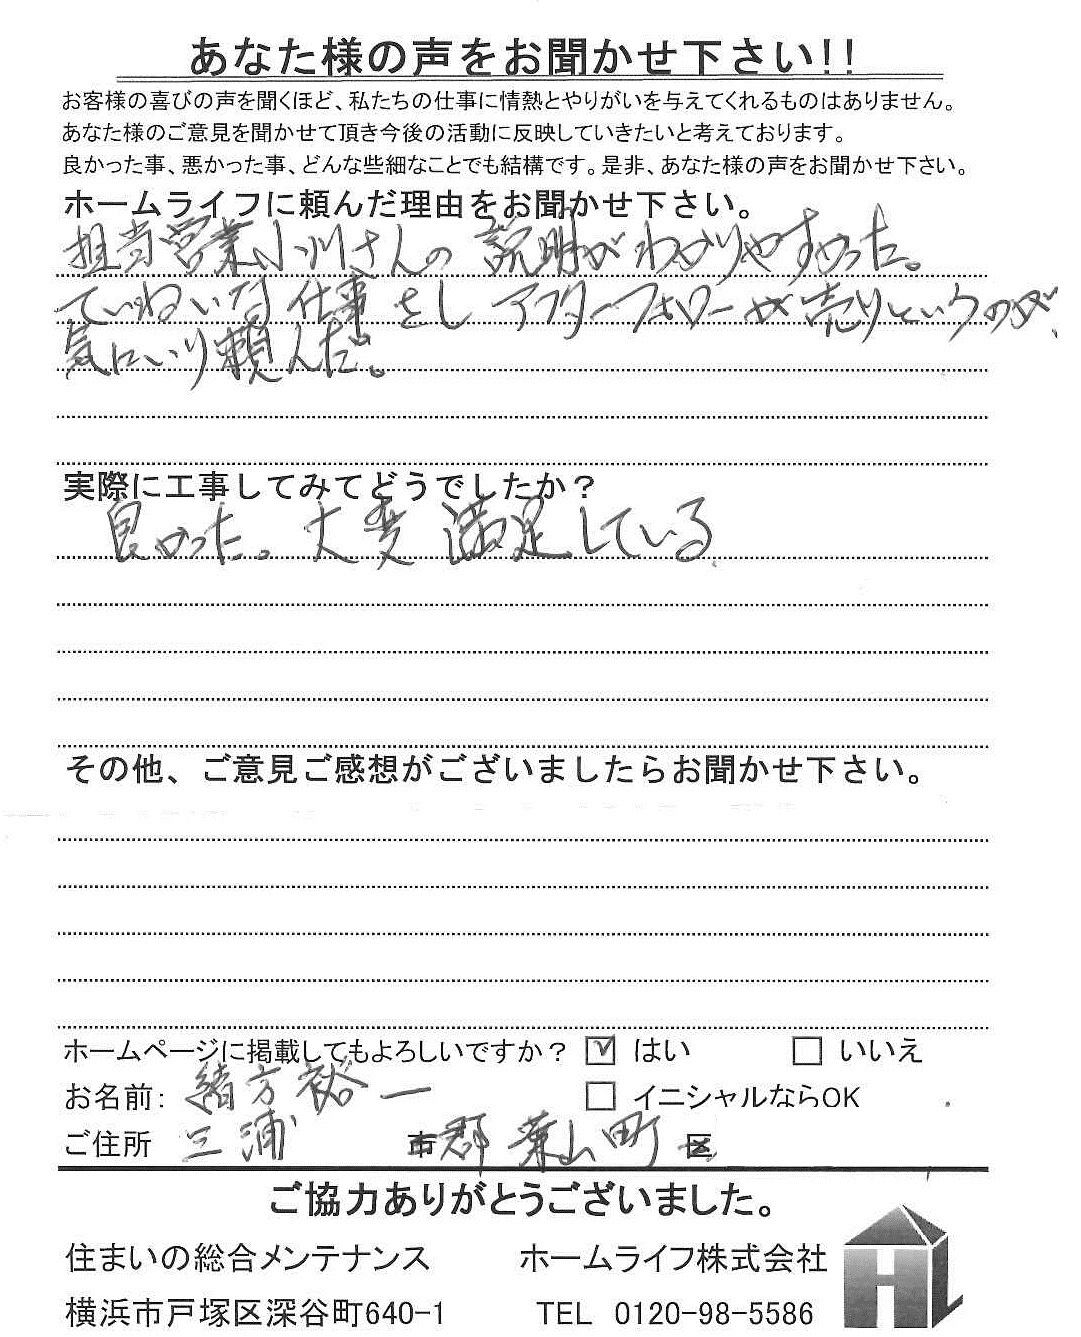 あなた様の声をお聞かせ下さい!!
お客様の喜びの声を聞くほど、私たちの仕事に情熱とやりがいを与えてくれるものはありません。
あなた様のご意見を聞かせて頂き今後の活動に反映していきたいと考えております。
良かった事、悪かった事、どんな些細なことでも結構です。是非、あなた様の声をお聞かせ下さい。
ホームライフに頼んだ理由をお聞かせ下さい。
担当営業小川さんの 説明がわかりやすかった。
ていねいな仕事をし アフターフォローが売りというのが、
気にいり頼んだ。
実際に工事してみてどうでしたか？
良かった。大変満足している
その他、ご意見ご感想がございましたらお聞かせ下さい。
ホームページに掲載してもよろしいですか？ ☑ はい □ いいえ
お名前: 緒方裕一 □ イニシャルならOK
ご住所 三浦 市郡 葉山町 区
ご協力ありがとうございました。
住まいの総合メンテナンス ホームライフ株式会社
横浜市戸塚区深谷町640-1 TEL 0120-98-5586
HL